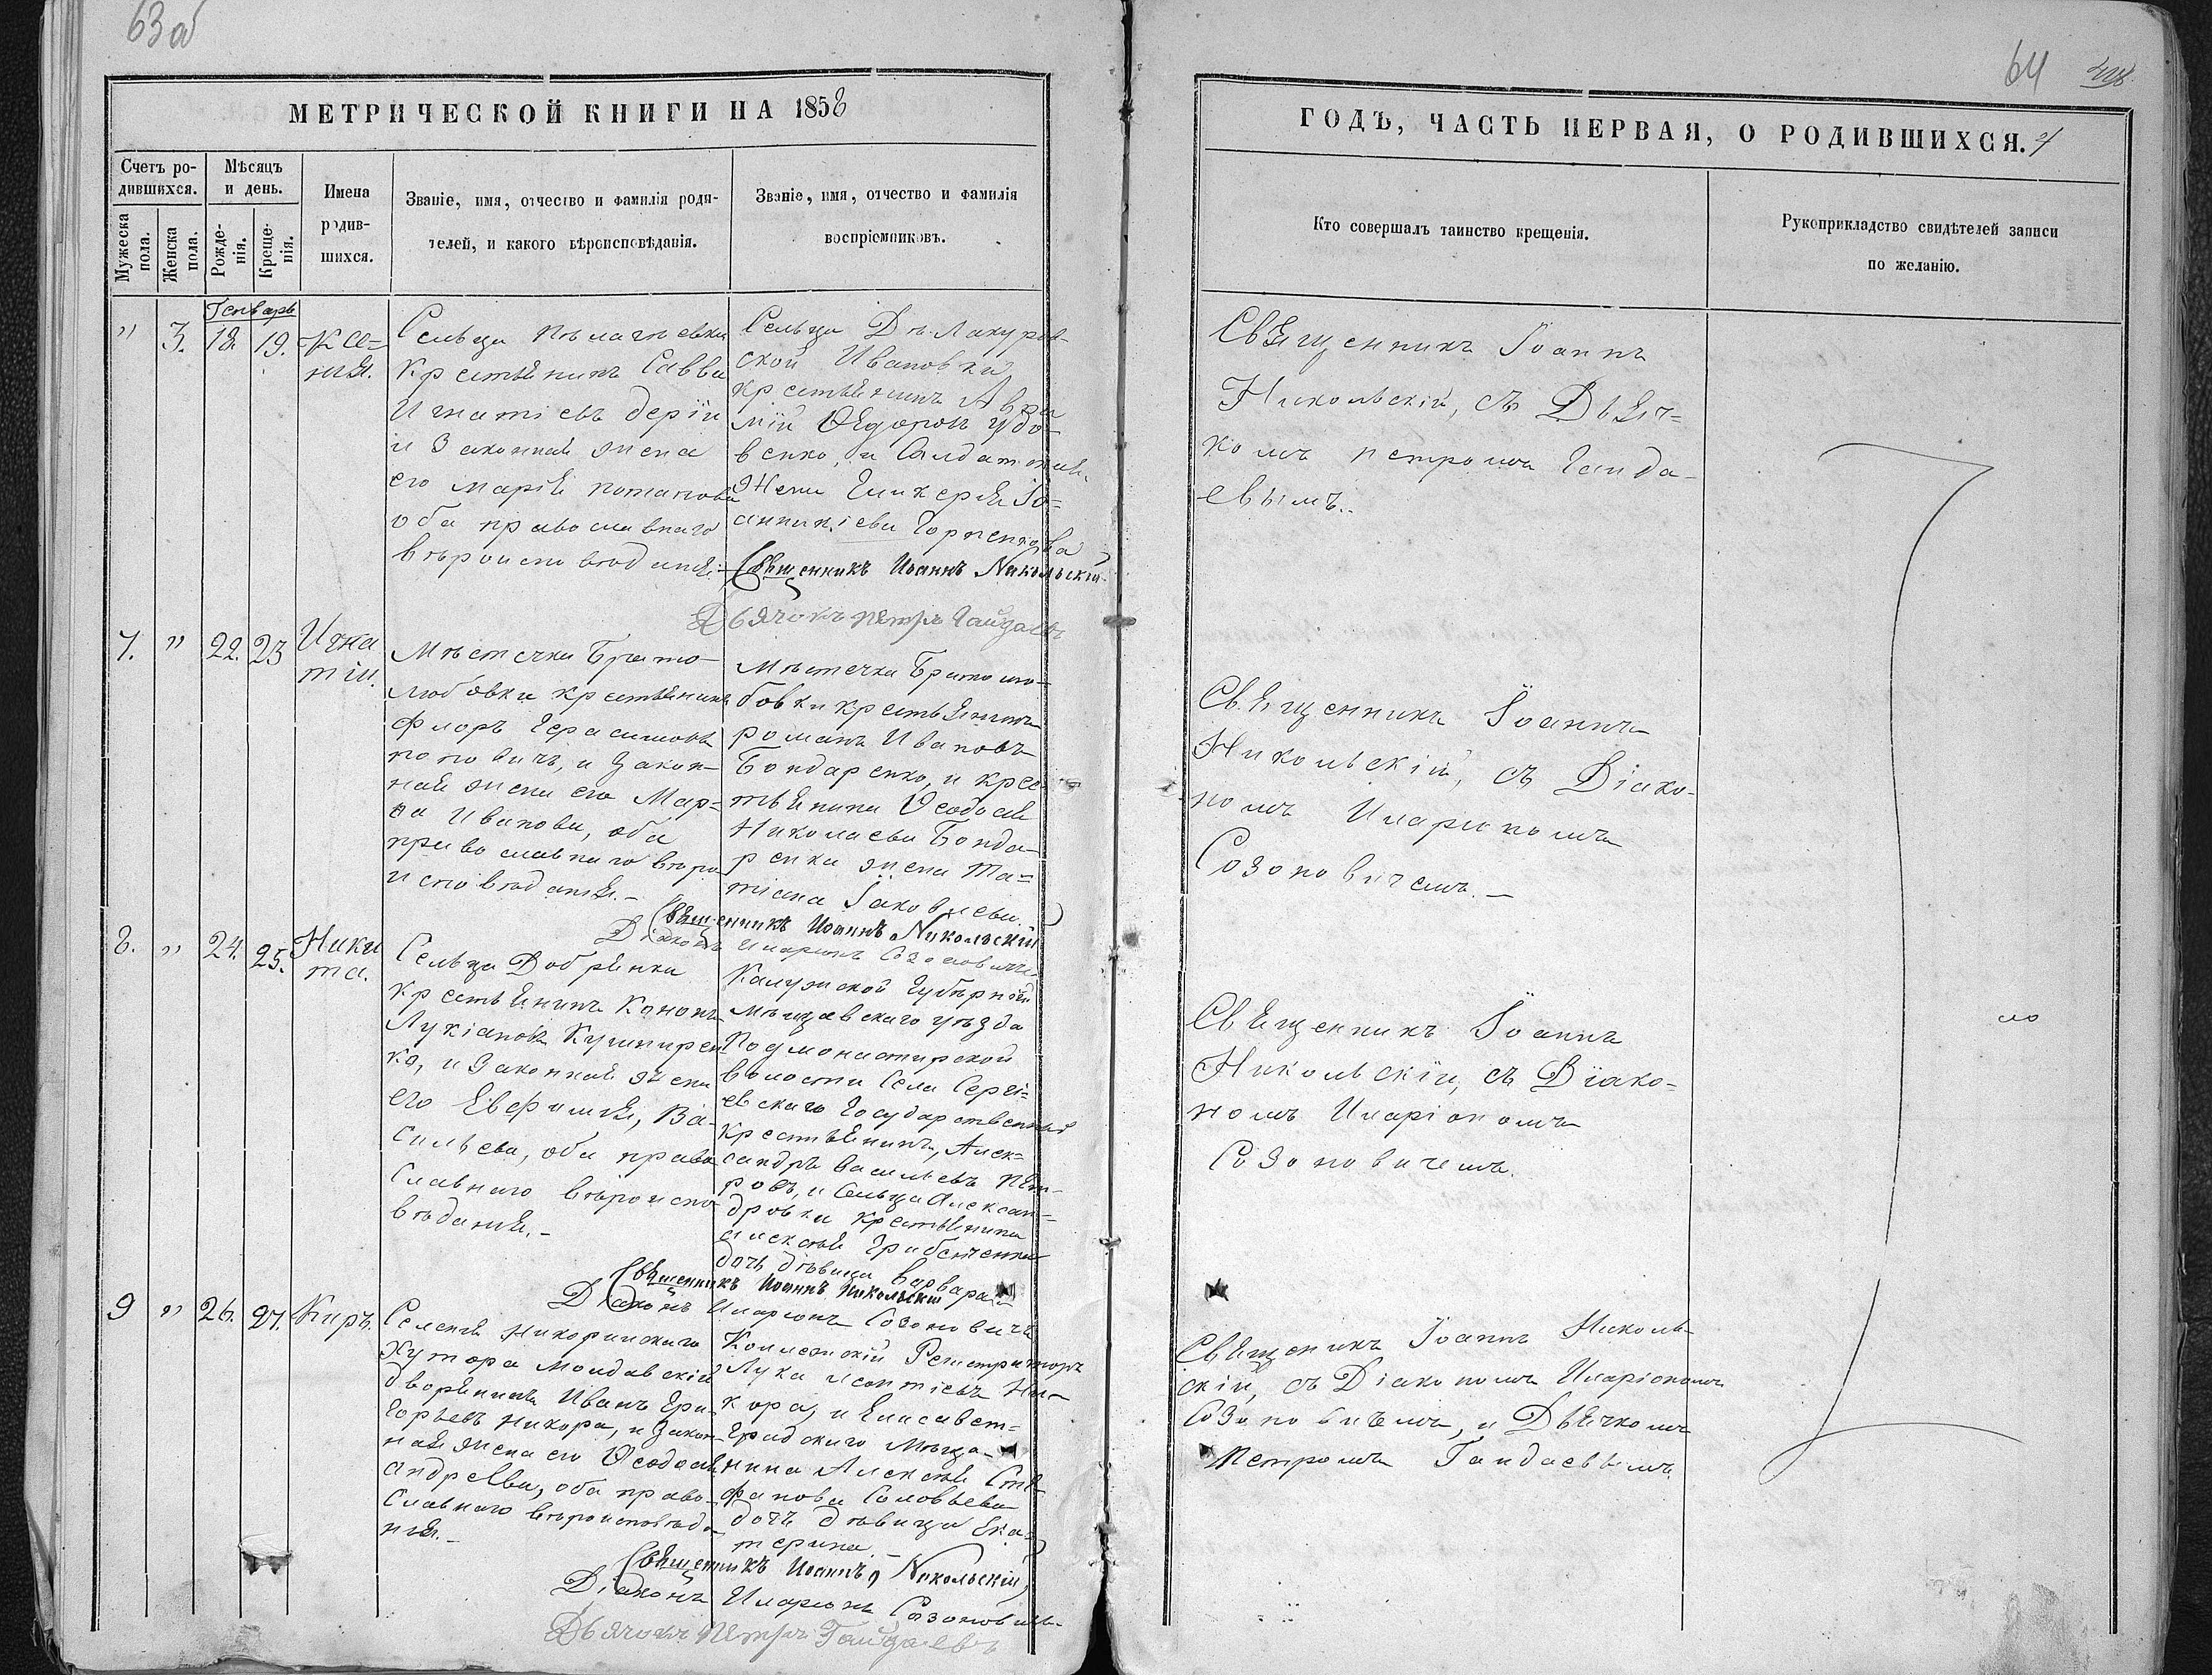 63 об
МЕТРИЧЕСКОЙ КНИГИ НА 1858
Счетъ ро-
дившихся.
Мужеска
пола.
Женска
пола.
Мѣсяцъ
и день.
Рожде-
нія.
Креще-
нія.
Имена
родив-
шихся.
Званіе, имя, отчество и фамилія роди-
телей, и какого вѣроисповѣданія.
Званіе, имя, отчество и фамилія
воспріемниковъ.
Генварь
" 3. 18. 19. Ксе=
нія.
Сельца
Крестьянинъ Савва
Игнатіевъ
и Законная жена
его Марія Потапова
оба православнаго
вѣроисповѣданія.
Сельца
ской Ивановки
крестьянинъ
Ѳедоровъ Удо-
венко, и Солдатская
Жена Гликерія Іо=
анникіева
Священникъ Иоаннъ Никольскій
Дьячокъ Петръ Гайдаевъ
7. " 22. 23 Игна
тій.
Мѣстечка Брато-
любовки крестьянинъ
Флоръ Герасимовъ
Поповичъ, и закон-
ная жена его Мар=
ѳа Иванова, оба
православнаго вѣро
исповѣданія.-
Мѣстечка Братолю-
бовки крестьянинъ
Романъ Ивановъ
Бондаренко, и крес-
тьянина Ѳеодосія
Николаева Бонда-
ренка жена Та=
тіана Іаковлева.
Священникъ Иоаннъ Никольскій
Діаконъ Иларіонъ Созоновичъ
8. " 24. 25. Ники
та.
Сельца Добрянки
Крестьянинъ Кононъ
Лукіановъ Кушнирен
ко, и Законная жена
его Евфимія, Ва-
сильева, оба право
славнаго вѣроиспо-
вѣданія.-
Калужской Губерніи
Мѣщавскаго уѣзда
Подмонастырской
волости Села Сергі=
евскаго Государственный
крестьянинъ, Алек=
сандръ Васильевъ Пет-
ровъ, и Сельца Алексан=
дровки крестьянина
Алексѣя
дочь дѣвица Варвара
Священникъ Иоаннъ Никольскій
Діаконъ Иларіонъ Созоновичъ
9 " 26. 27. Киръ.
Селенія Никоринскаго
Хутора Молдавскій
дворянинъ Иванъ Гри-
горьевъ Никора, и закон-
ная жена его Ѳеодосія
Андреева, оба право-
славнаго вѣроисповѣда-
нія.-
Коллежскій Регистраторъ
Лука Леонтіевъ Ни-
кора, и Елисавет=
градскаго Мѣща-
нина Алексѣя Сте-
фанова Соловьева
дочь дѣвица Ека-
терина.-
Священникъ Иоаннъ Никольскій,
Діаконъ Иларіонъ Созоновичъ
Дьячокъ Петръ Гайдаевъ
64
ГОДЪ, ЧАСТЬ ПЕРВАЯ, О РОДИВШИХСЯ.
Кто совершалъ таинство крещенія.
Рукоприкладство свидѣтелей записи
по желанію.
Священникъ Іоаннъ
Никольскій, съ Дьяч=
комъ Петромъ Гайда-
евымъ..
Священникъ Іоаннъ
Никольскій, съ Діако-
номъ Иларіономъ
Созоновичемъ.-
Священникъ Іоаннъ
Никольскій, съ Діако-
номъ Иларіономъ
Созоновичемъ.
Священникъ Іоаннъ Николь-
скій, съ Діакономъ Иларіономъ
Созоновичемъ, и Дьячкомъ
Петромъ Гайдаевымъ